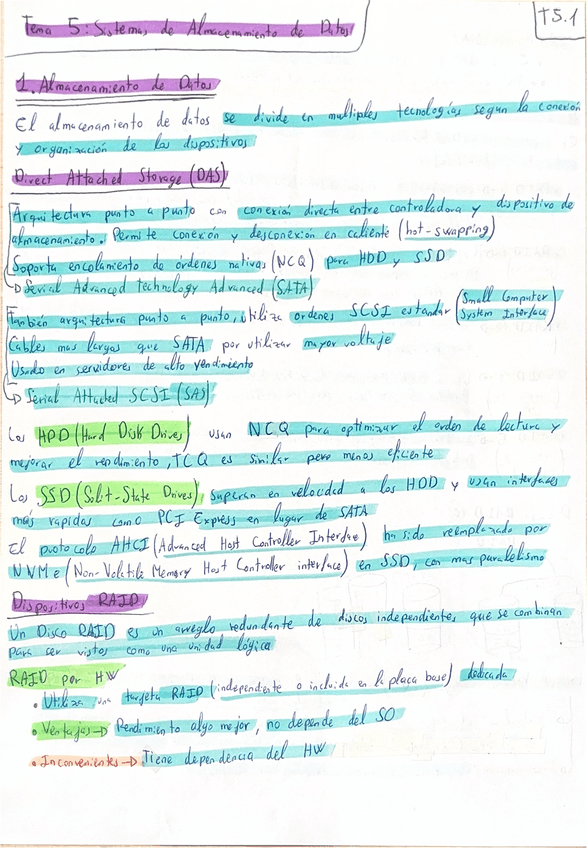 Tema 5: Sistemas de Almacenamiento de Datos
T5.1
1. Almacenamiento de Datos
El almacenamiento de datos se divide en multiples tecnologías segun la conexión
y organización de los dispositivos
Direct Attached Storage (DAS)
Arquitectura punto a punto con conexión directa entre controladora y dispositivo de
almacenamiento. Permite conexión y desconexión en caliente (hot-swapping)
Soporta encolamiento de órdenes nativas (NCQ) para HDD y SSD
Serial Advanced technology Advanced (SATA)
También arquitectura punto a punto, utiliza ordenes SCSI estandar (Small Computer
System Interface)
Cables mas largos que SATA por utilizar mayor voltaje
Usado en servidores de alto rendimiento
Serial Attached SCSI (SAS)
Los HDD (Hard Disk Drives) usan NCQ para optimizar el orden de lectura y
mejorar el rendimiento, TCQ es similar pero menos eficiente
Los SSD (Solit-State Drives), superan en velocidad a los HDD y usan interfaces
más rapidas como PCI Express en lugar de SATA
El protocolo AHCI (Advanced Host Controller Interface) ha sido reemplazado por
NVMe (Non-Volatile Memory Host Controller interface) en SSD, con mas paralelismo
Dispositivos RAID
Un Disco RAID es un arreglo redundante de discos independientes que se combinan
para ser vistos como una unidad lógica
RAID por HW
• Utiliza una targeta RAID (independente o incluida en la placa base) dedicada
• Ventajas → Rendimiento algo mejor, no depende del SO
• Inconvenientes → Tiene dependencia del HW